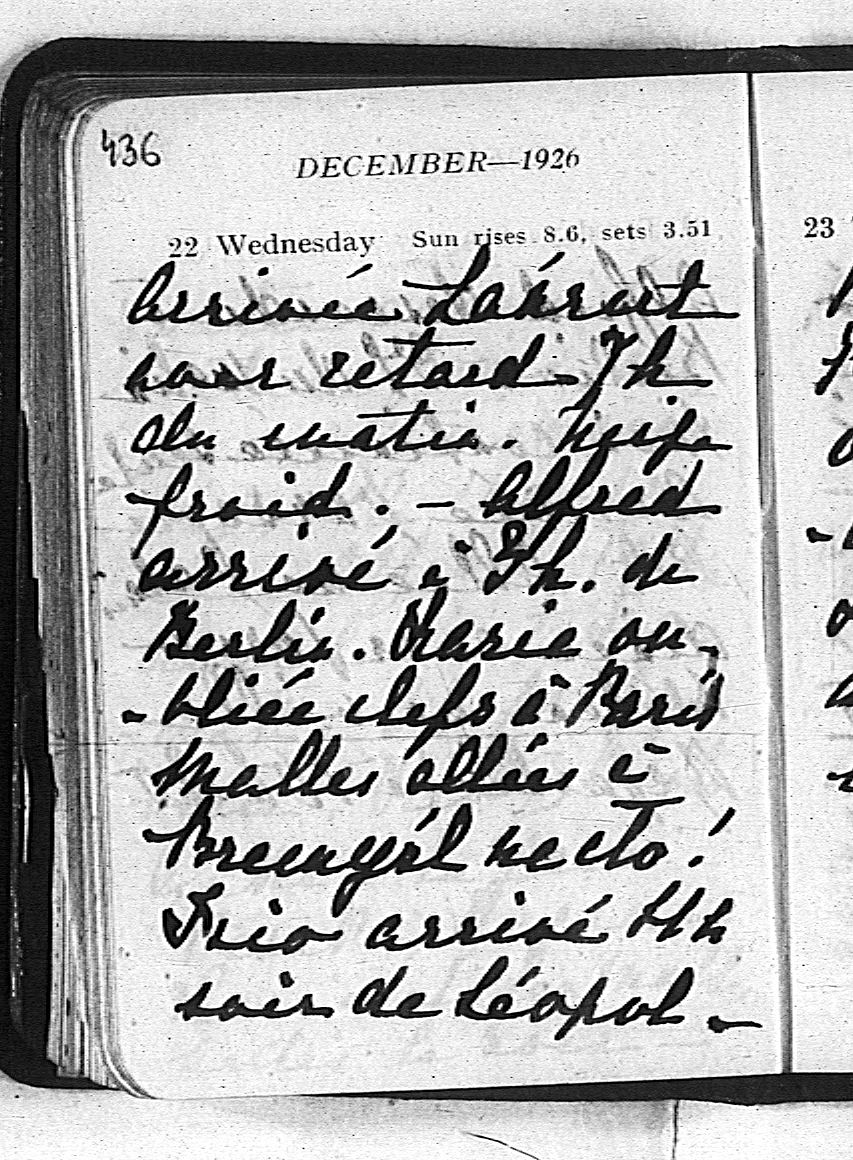 436
DECEMBER—1926
22 Wednesday Sun rises 8.6, sets 3.51
23
Arrivée Łańcut
avec retard 7 h
du matin. Neige
froid. — Alfred
arrivé à 9 h. de
Berlin. Marie ou-
- bliée clefs à Paris
Malles allées à
Przemyśl necto!
Frio arrivé 4 h
soir de Léopol -